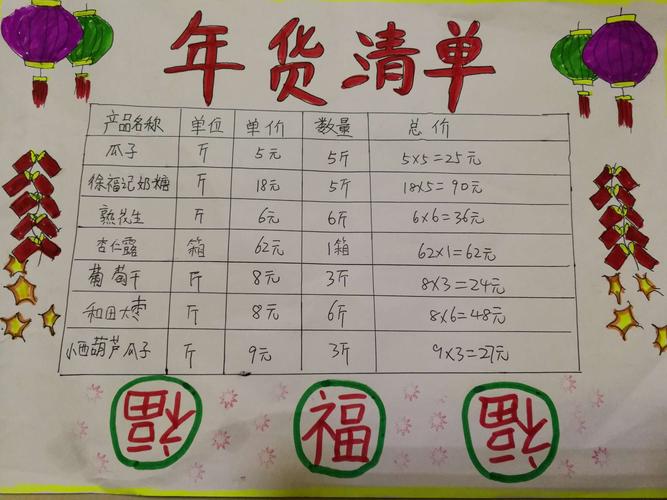 年货清单
产品名称 单位 单价 数量 总价
瓜子 斤 5元 5斤 5×5=25元
徐福记奶糖 斤 18元 5斤 18×5=90元
熟花生 斤 6元 6斤 6×6=36元
杏仁露 箱 62元 1箱 62×1=62元
葡萄干 斤 8元 3斤 8×3=24元
和田大枣 斤 8元 6斤 8×6=48元
小西葫芦瓜子 斤 9元 3斤 9×3=27元
福 福 福